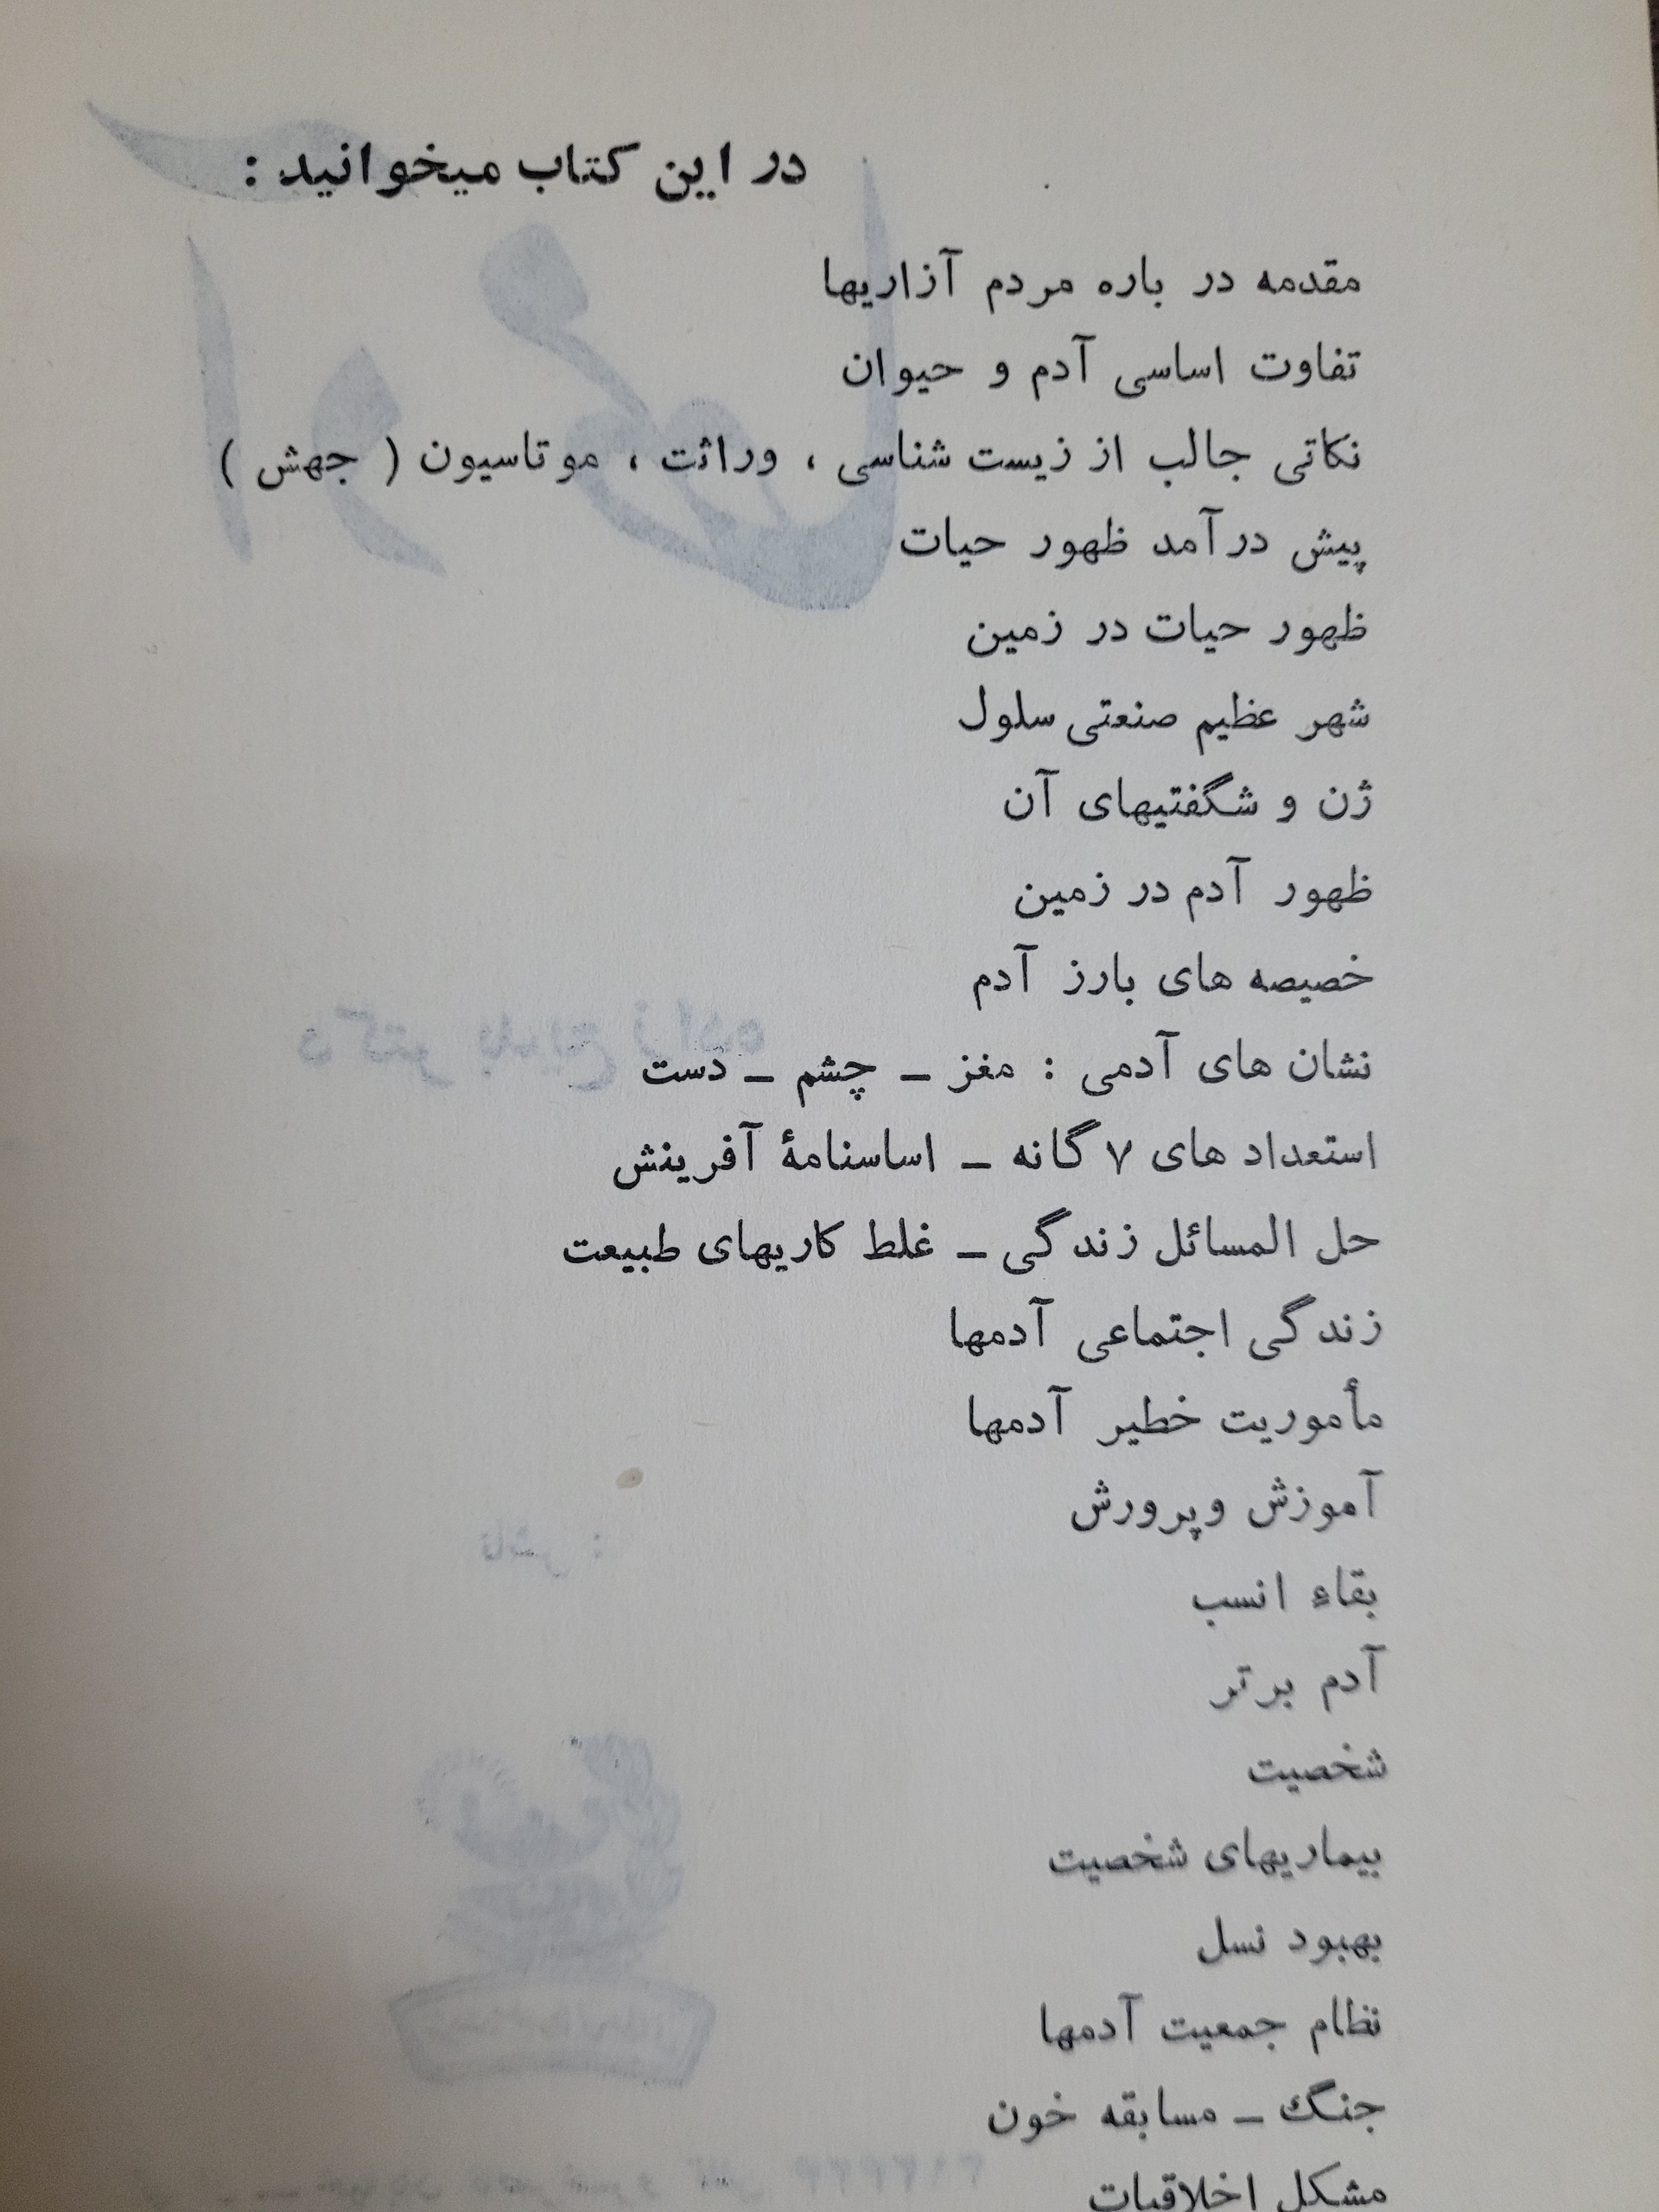 در این کتاب میخوانید :
مقدمه در باره مردم آزاریها
تفاوت اساسی آدم و حیوان
نکاتی جالب از زیست شناسی ، وراثت ، موتاسیون ( جهش )
پیش درآمد ظهور حیات
ظهور حیات در زمین
شهر عظیم صنعتی سلول
ژن و شگفتیهای آن
ظهور آدم در زمین
خصیصه های بارز آدم
نشان های آدمی : مغز ـ چشم ـ دست
استعداد های ۷ گانه ـ اساسنامهٔ آفرینش
حل المسائل زندگی ـ غلط کاریهای طبیعت
زندگی اجتماعی آدمها
مأموریت خطیر آدمها
آموزش وپرورش
بقاء انسب
آدم برتر
شخصیت
بیماریهای شخصیت
بهبود نسل
نظام جمعیت آدمها
جنگ ـ مسابقه خون
مشکل اخلاقیات